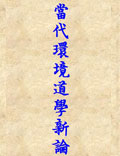 當代環境道學新論